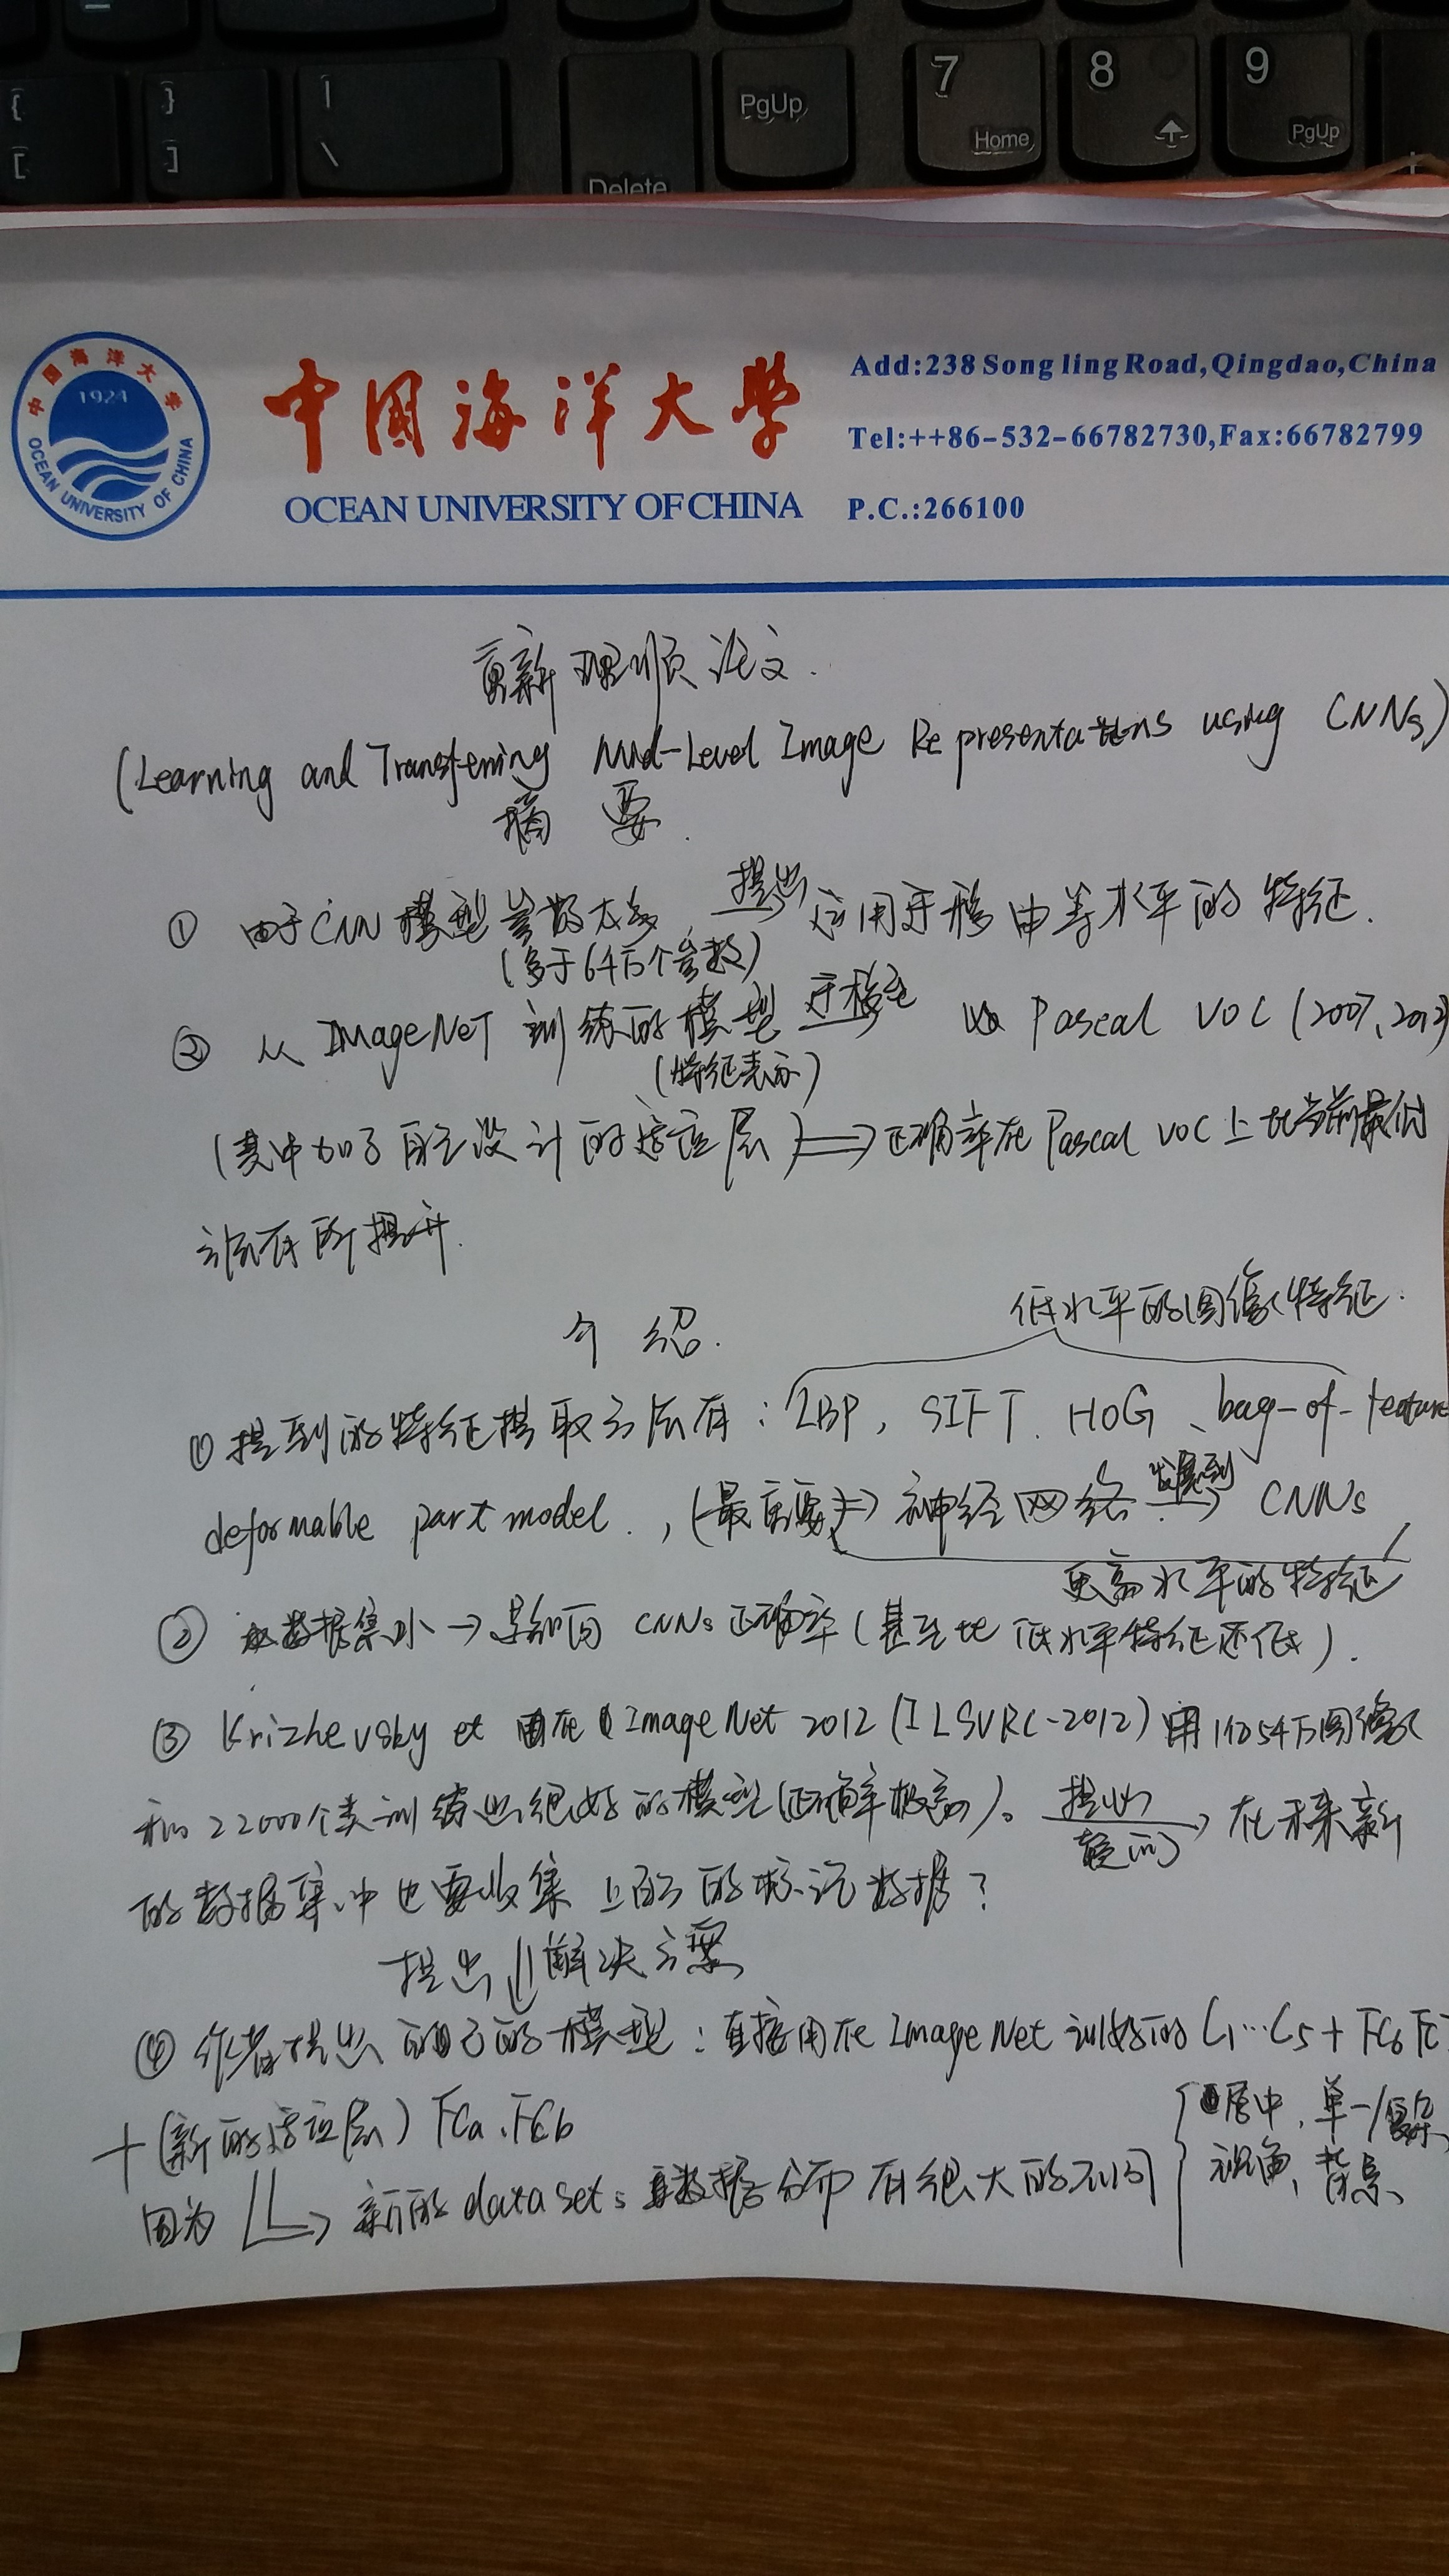 {
[
}
]
|
\
Delete
PgUp
7
Home
8
9
PgUp
中国海洋大学
1924
OCEAN UNIVERSITY OF CHINA
中國海洋大學
OCEAN UNIVERSITY OF CHINA
Add:238 Song ling Road,Qingdao,China
Tel:++86-532-66782730,Fax:66782799
P.C.:266100
重新理顺论文.
(Learning and Transferring Mid-Level Image Representations using CNNs)
摘 要.
① 由于CNN模型参数太多 提出 应用于移 中等水平的 特征.
(多于6千万个参数)
② 从 ImageNet 训练的模型 迁移至 Pascal VOC (2007、2012)
(特征表示)
(其中加了自己设计的适应层) ⇒ 正确率在 Pascal VOC 上比当前最
有所提升.
介 绍.
低水平的图像特征.
① 提到的特征提取方法有: LBP, SIFT、HOG、bag-of-feature
deformable part model., (最重要) ⇒ 神经网络 发展到→ CNNs
更高水平的特征
② 数据集小 → CNNs 正确率 (甚至比低水平特征还低).
③ Krizhevsky et 在 ImageNet 2012 (ILSVRC-2012) 用 万图像
和 22000个类训练出很好的模型(正确率极高)。 提出疑问→ 在未来新
的数据集中也要收集上 的标记数据?
提出⇓解决方案
④ 作者提出自己的模型: 直接用在 ImageNet 训好的 C1…C5 + FC6 FC7
+ (新的适应层) FCa、FCb
居中、单一/复杂
视角、背景
因为 → 新的 datasets 数据分布有很大的不同